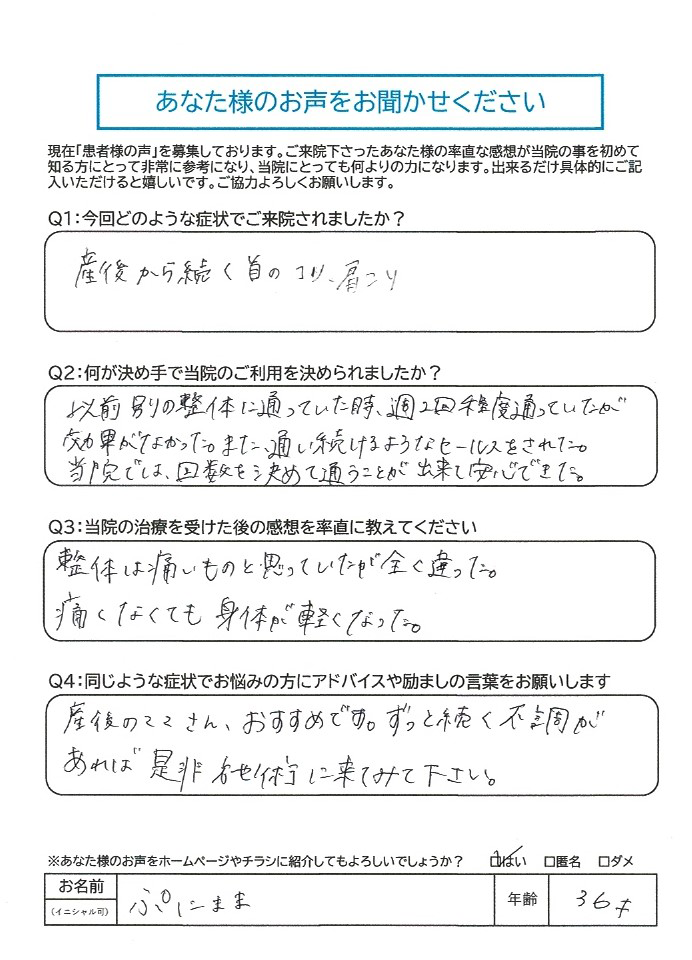 あなた様のお声をお聞かせください
現在「患者様の声」を募集しております。ご来院下さったあなた様の率直な感想が当院の事を初めて
知る方にとって非常に参考になり、当院にとっても何よりの力になります。出来るだけ具体的にご記
入いただけると嬉しいです。ご協力よろしくお願いします。
Q1:今回どのような症状でご来院されましたか？
産後から続く首のコリ、肩こり
Q2:何が決め手で当院のご利用を決められましたか？
以前別の整体に通っていた時、週2回程度通っていたが
効果がなかった。また、通い続けるようなセールスをされた。
当院では、回数を決めて通うことが出来て安心できた。
Q3:当院の治療を受けた後の感想を率直に教えてください
整体は痛いものと思っていたが全く違った。
痛くなくても身体が軽くなった。
Q4:同じような症状でお悩みの方にアドバイスや励ましの言葉をお願いします
産後のママさん、おすすめです。ずっと続く不調が
あれば是非施術に来てみて下さい。
※あなた様のお声をホームページやチラシに紹介してもよろしいでしょうか？ □はい □匿名 □ダメ
お名前 ぷにまま 年齢 36才
（イニシャル可）